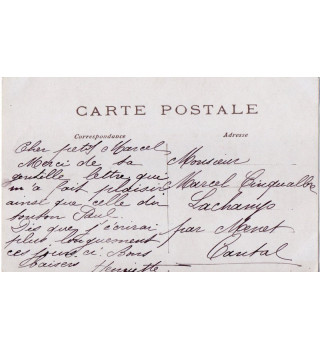 CARTE POSTALE
Correspondance
Adresse
Cher petit Marcel
Merci de ta
gentille lettre qui
m'a fait plaisir
ainsi que celle du
tonton Paul.
Dis que j'écrirai
plus longuement
ces jours ci. Bons
Baisers Henriette
Monsieur
Marcel Cinqualbre
Lachamp
par Menet
Cantal